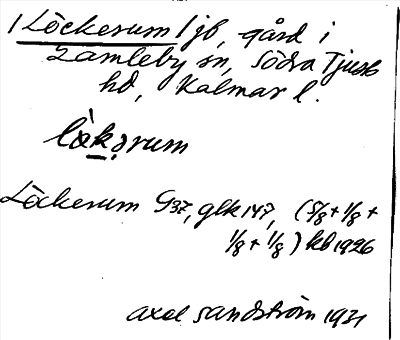 1 Löckerum 1 jb, gård i
Gamleby sn, Södra Tjusts
hd, Kalmar l.
lø̀kərum
Löckerum G37, glk 147, (5/8 + 1/8 +
1/8 + 1/8) kb 1926
Axel Sandström 1931